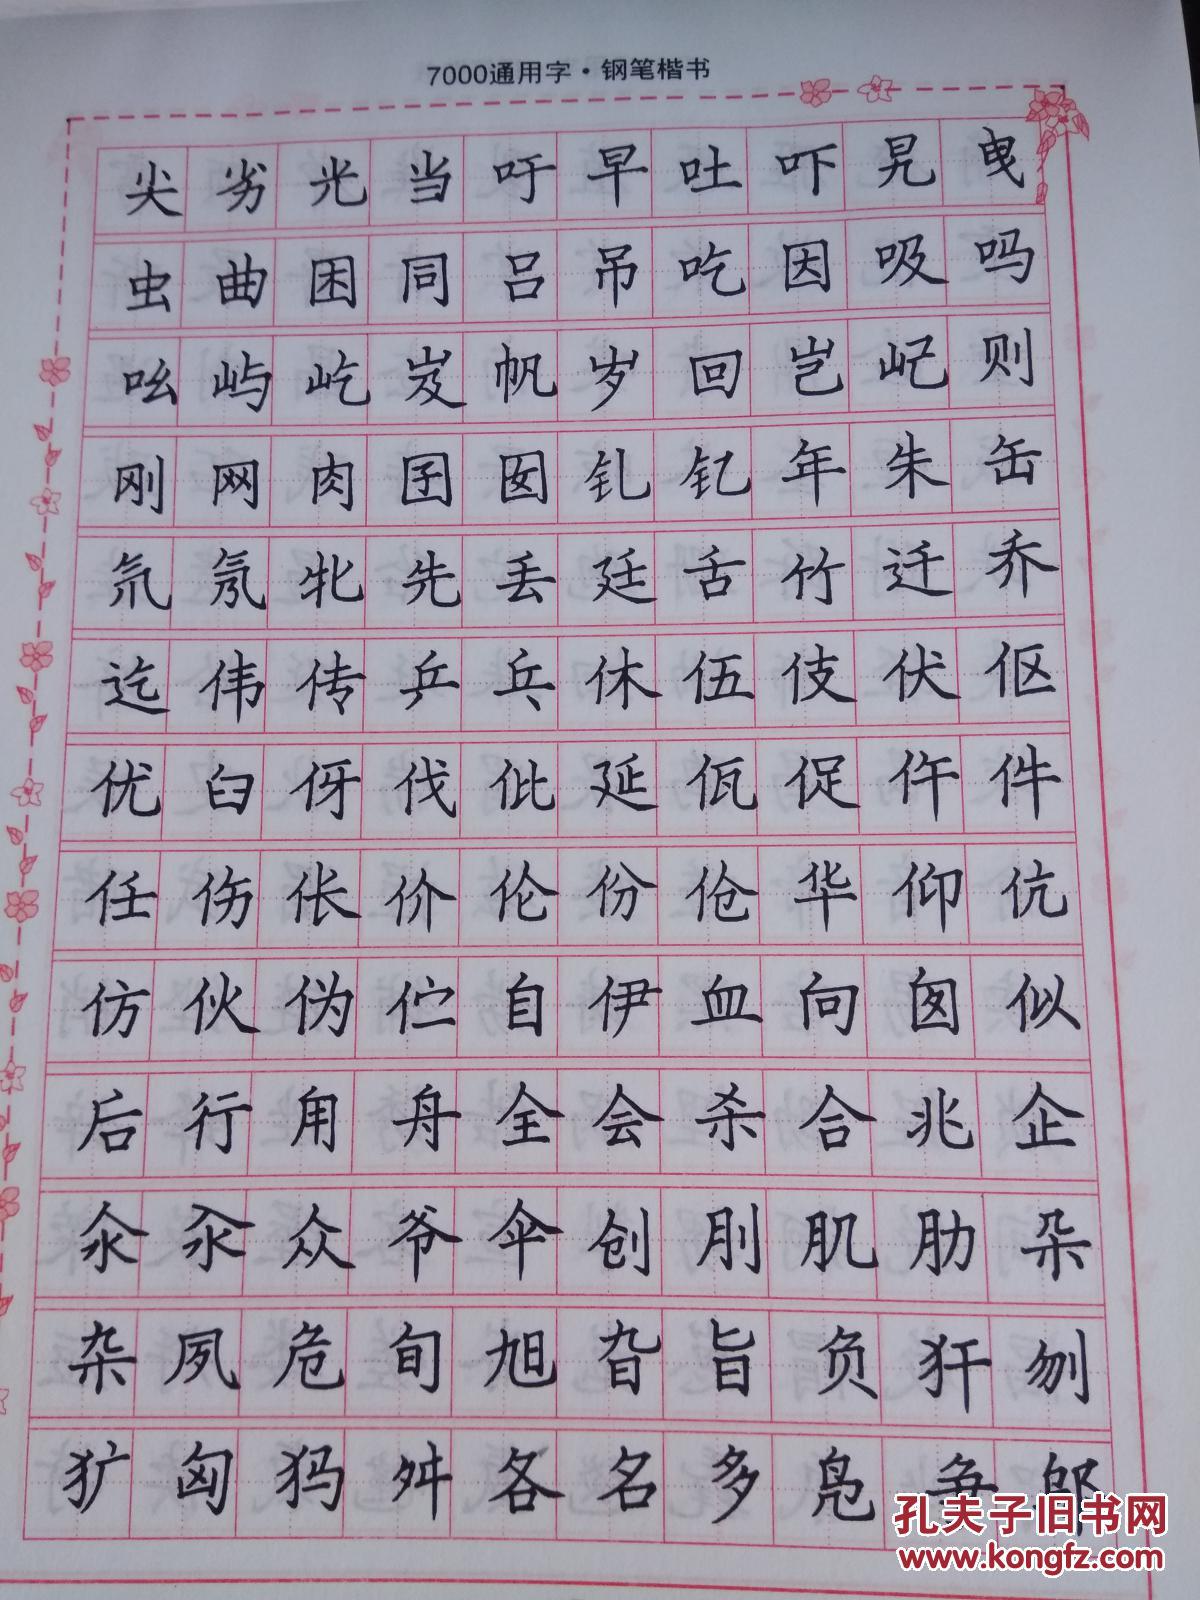 7000通用字·钢笔楷书
尖劣光当吁早吐吓旯曳
虫曲团同吕吊吃因吸吗
吆屿屹岌帆岁回岂屺则
刚网肉囝囡钆钇年朱缶
氘氖牝先丢廷舌竹迁乔
迄伟传乒乓休伍伎伏伛
优臼伢伐仳延佤促仵件
任伤伥价伦份伧华仰伉
仿伙伪伫自伊血向囟似
后行甪舟全会杀合兆企
汆氽众爷伞创刖肌肋朵
杂夙危旬旭旮旨负犴刎
犷匈犸舛各名多凫争邬
孔夫子旧书网
www.kongfz.com